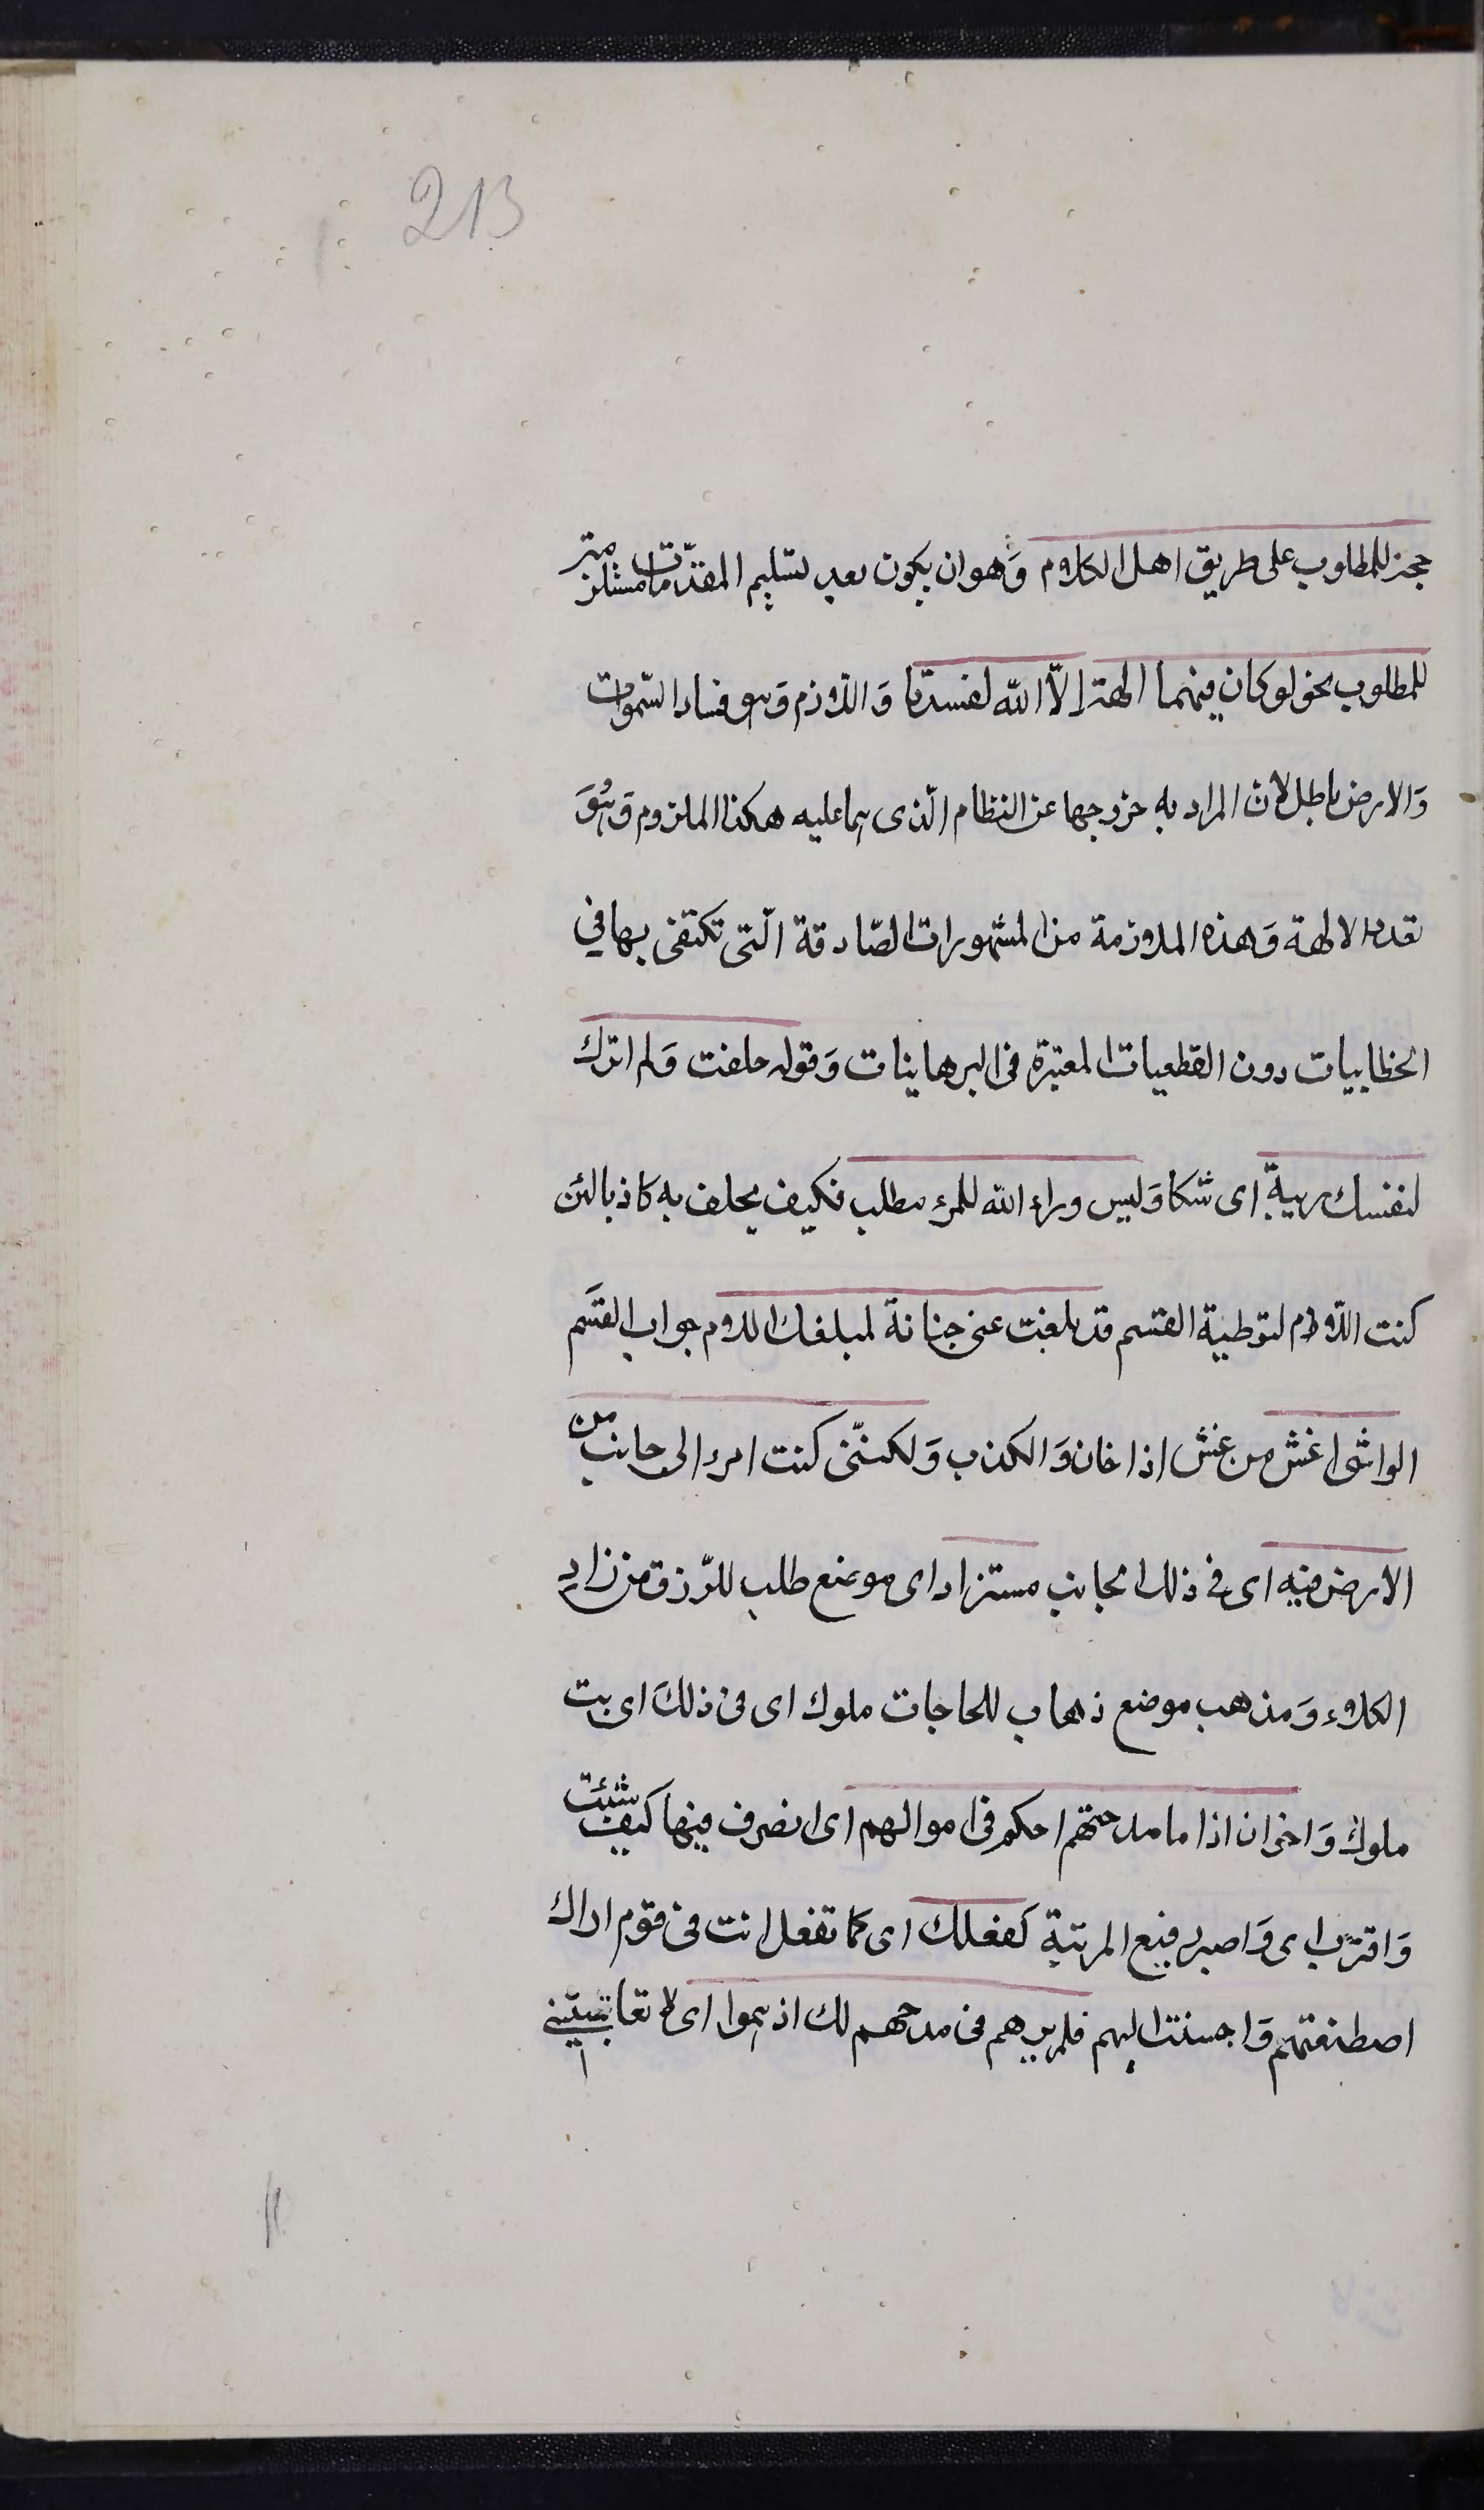 213
حجة للمطلوب على طريق اهل الكلام وَهو ان يكون بعد تسليم المقدّمات مستلزمة
للمطلوب نحو لو كان فيهما الهة إلّا الله لفسدتا وَاللّازم وَهو فساد السّموات
وَالارض باطل لانّ المراد به خروجها عن النظام الّذى هما عليه هكذا الملزوم وَهُوَ
تعدد الالهة وَهذه الملازمة من المشهورات الصّادقة الّتى تكتفى بها في
الخطابيات دون القطعيات المعتبرة فى البرهاينات وَقوله حلفت وَلم اترك
لنفسك ريبةً اى شكا وَليس وراء الله للمرء مطلب فكيف يحلف به كاذبا لئن
كنت اللّام لتوطية القسم قد بلغت عنى جنانة لمبلغك اللام جواب القسَم
الواشى اغش من غش اذا خان وَالكذب وَلكنّنى كنت امرء الى جانب من
الارض فيه اى فى ذلك الجانب مستزاد اى موضع طلب للرّزق من زادِ
الكلاء وَمذهب موضع ذهاب للحاجات ملوك اى فى ذلكَ اى بيت
ملوك وَاخوان اذا ما مدحتهم احكم فى اموالهم اى اتصرف فيها كيف شئت
وَاقترب اى وَاصير رفيع المرتبة كفعلك اى كما تفعل انت فى قوم اراك
اصطنعتهم وَاحسنت اليهم فلم يرهم فى مدحهم لك اذنبوا اى لا تعاتبنى